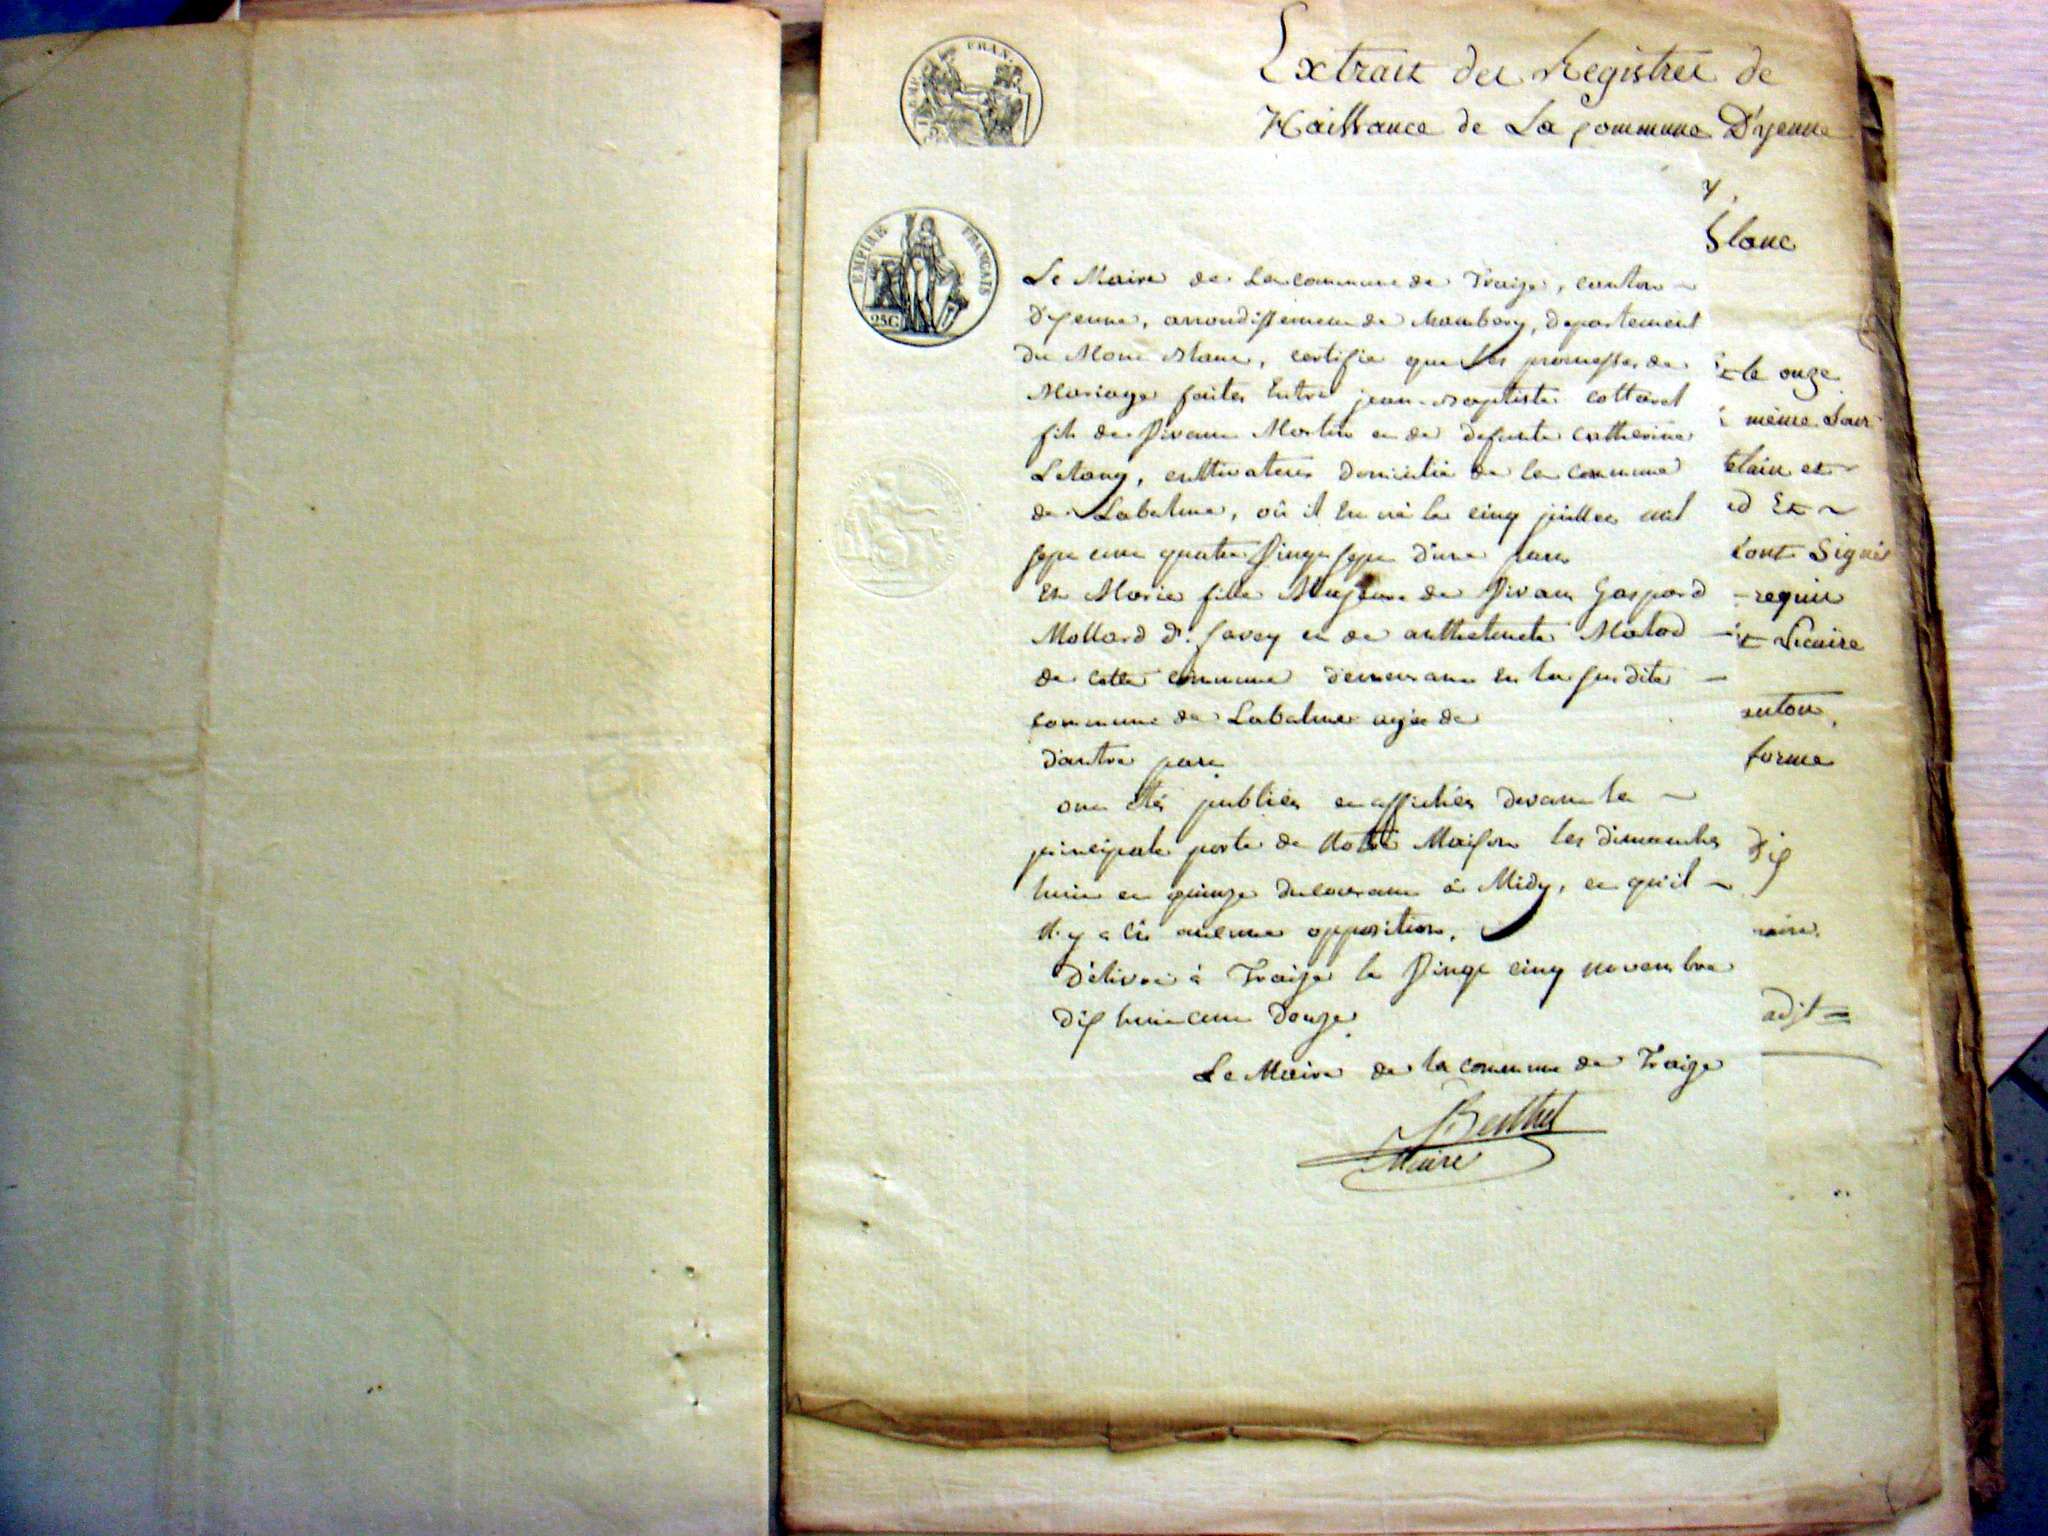 Extrait des Registres de
Naissance de La Commune D'yenne
EMPIRE FRAN
EMPIRE FRANÇAIS
25C
Blanc
Le Maire de la commune de Traize, canton
D'yenne, arrondissement de Chambery, departement
du Mont Blanc, certifie que les promesses de
Mariage faites Entre jean-Baptiste cottarel
fils de Vivant Martin et de defunte catherine
Letang, cultivateur domicilié de la commune
de Labalme, où il est né le cinq juillet mil
sept cent quatre Vingt sept d'une part
Et Marie fille Majeure de Vivant Gaspard
Mollard d. Savey et de anthelmette Malod
de cette commune demeurant en la susdite
commune de Labalme agée de
d'autre part
ont étés publiés et affichés devant la
principale porte de Notre Maison les dimanches
huit et quinze du courant à Midy, et qu'il
N'y a eû aucune opposition.
Délivré à Traize le Vingt cinq novembre
dix huit cent Douze
Le Maire de la commune de Traize
Berthet
Maire
le onze
même Jour
et
Et
sont Signés
requis
Vicaire
forme
dix
adjt